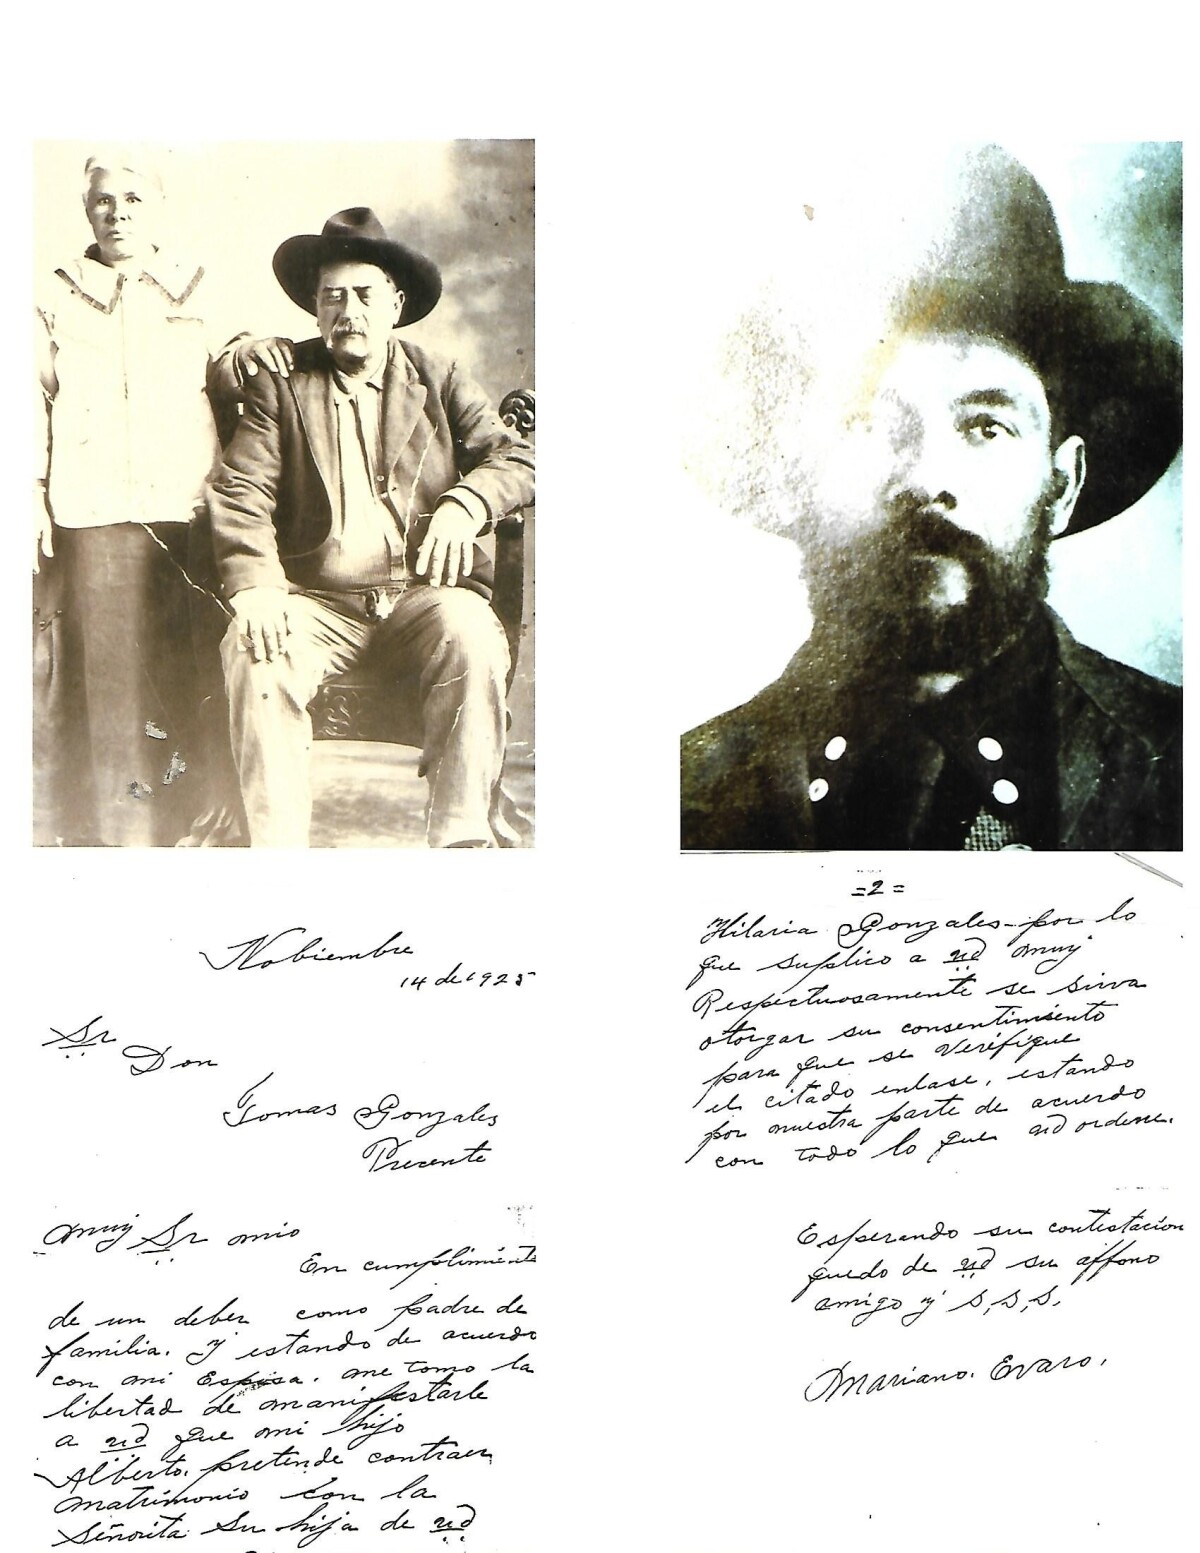 Nobiembre
14 de 1925
Sr
Don
Tomas Gonzales
Precente
Muy Sr mio
En cumplimiento
de un deber como padre de
familia. Y estando de acuerdo
con mi Esposa. me tomo la
libertad de manifestarle
a ud que mi hijo
Alberto. pretende contraer
matrimonio con la
Señorita su hija de ud
=2=
Hilaria Gonzales-por lo
que suplico a ud muy
Respectuosamente se sirva
otorgar su consentimiento
para que se Verifique
el citado enlase, estando
por nuestra parte de acuerdo
con todo lo que ud ordene.
Esperando su contestacion
quedo de ud su affono
amigo y S,S,S.
Mariano. Evaro.